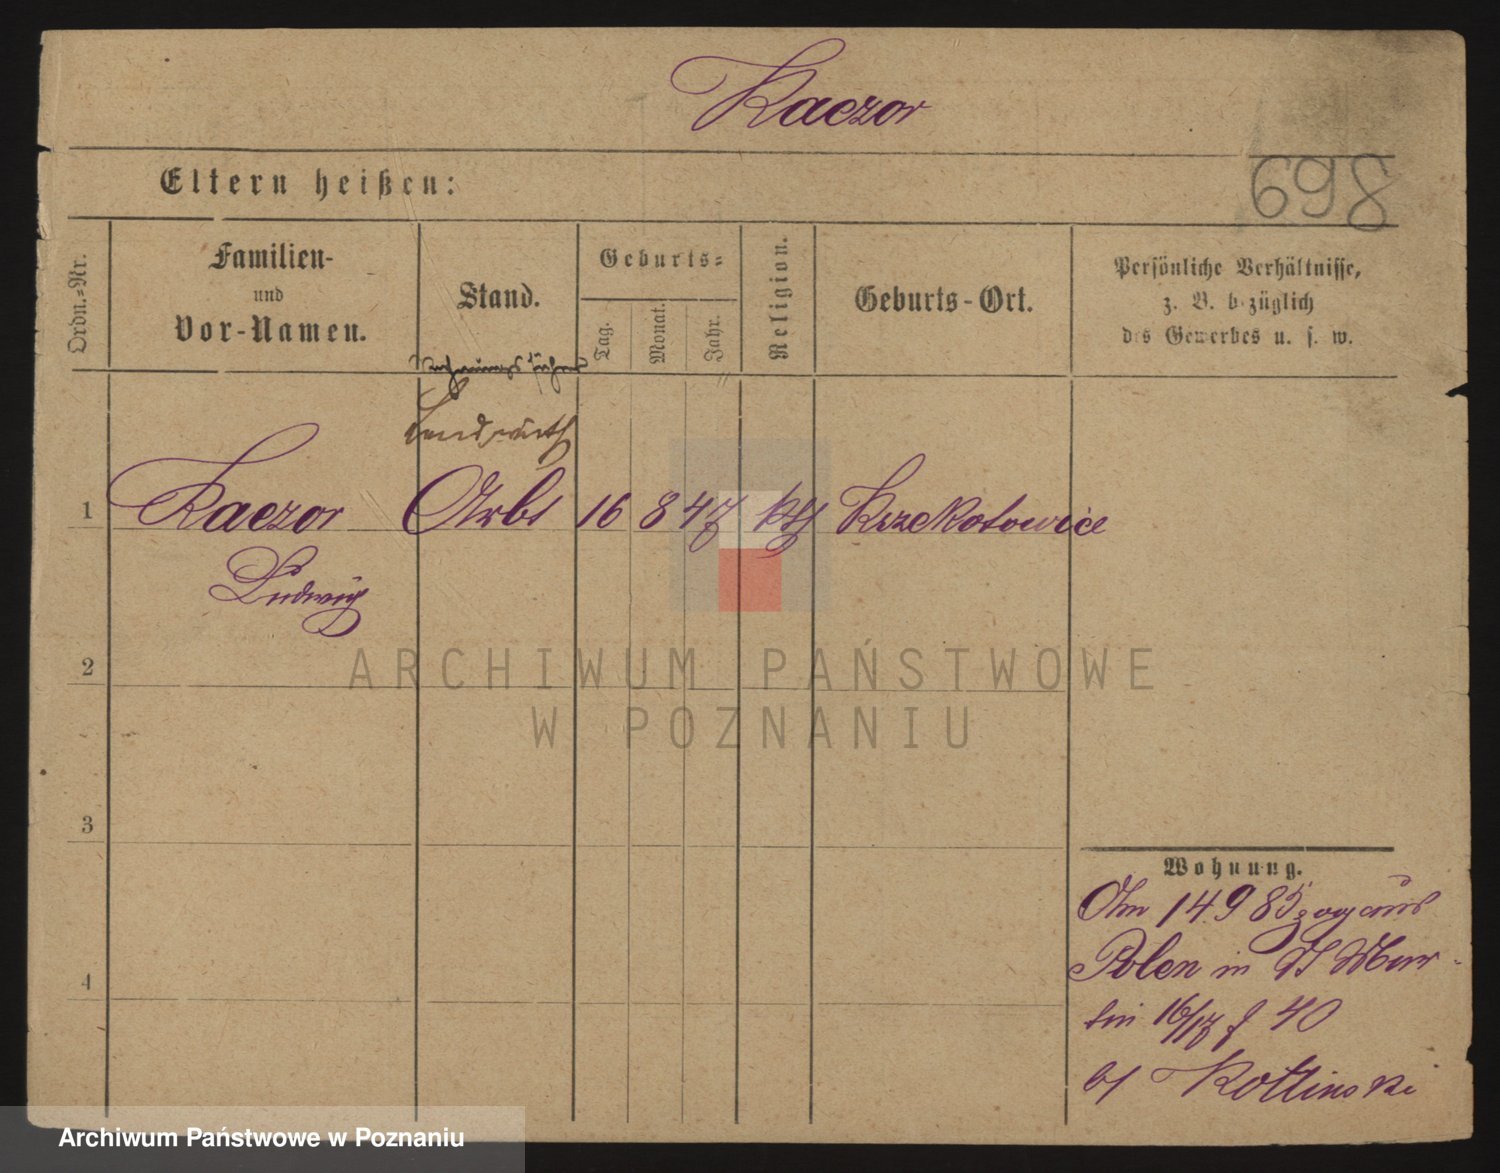 Kaczor
698
Eltern heißen:
Ordn.-Nr.
Familien-
und
Vor-Namen.
Stand.
Geburts-
Tag.
Monat.
Jahr.
Religion.
Geburts-Ort.
Persönliche Verhältnisse,
z. B. bezüglich
des Gewerbes u. s. w.
Landwirth
1 Kaczor Arbt 16 8 47 kth Krzekotowice
Ludwig
2
3
4
Wohnung.
Am 14.9 85 zog aus
Polen in St Mar-
tin 16/17 f 40
bf Kotlinski
ARCHIWUM PAŃSTWOWE
W POZNANIU
Archiwum Państwowe w Poznaniu